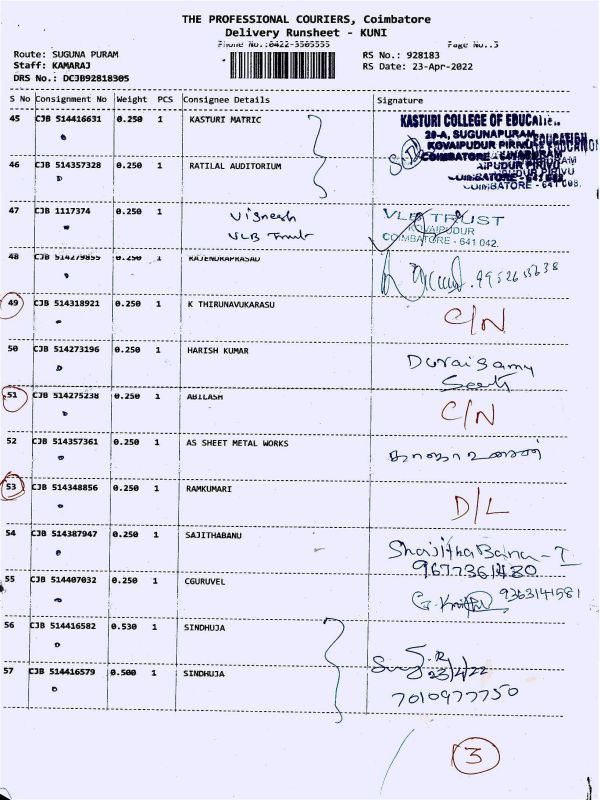 THE PROFESSIONAL COURIERS, Coimbatore
Delivery Runsheet - KUNI
Phone No.:0422-3505555 Page No.:3
Route: SUGUNA PURAM RS No.: 928183
Staff: KAMARAJ RS Date: 23-Apr-2022
DRS No.: DCJB92818305
S No Consignment No Weight PCS Consignee Details Signature
45 CJB 514416631 0.250 1 KASTURI MATRIC
KASTURI COLLEGE OF EDUCATION
28-A, SUGUNAPURAM
KOVAIPUDUR PIRIVU
COIMBATORE - 641 008.
46 CJB 514357328 0.250 1 RATILAL AUDITORIUM
47 CJB 1117374 0.250 1 Vignesh
VLB Trust
VLB TRUST
KOVAIPUDUR
COIMBATORE - 641 042.
48 CJB 514279855 0.250 1 RAJENDRAPRASAD
49 CJB 514318921 0.250 1 K THIRUNAVUKARASU C/N
50 CJB 514273196 0.250 1 HARISH KUMAR Duraisamy
51 CJB 514275238 0.250 1 ABILASH C/N
52 CJB 514357361 0.250 1 AS SHEET METAL WORKS
53 CJB 514348856 0.250 1 RAMKUMARI D/L
54 CJB 514387947 0.250 1 SAJITHABANU ShajithaBanu - T
9677361480
55 CJB 514407032 0.250 1 CGURUVEL 9363141581
56 CJB 514416582 0.530 1 SINDHUJA
23/4/22
57 CJB 514416579 0.500 1 SINDHUJA
7010977750
3